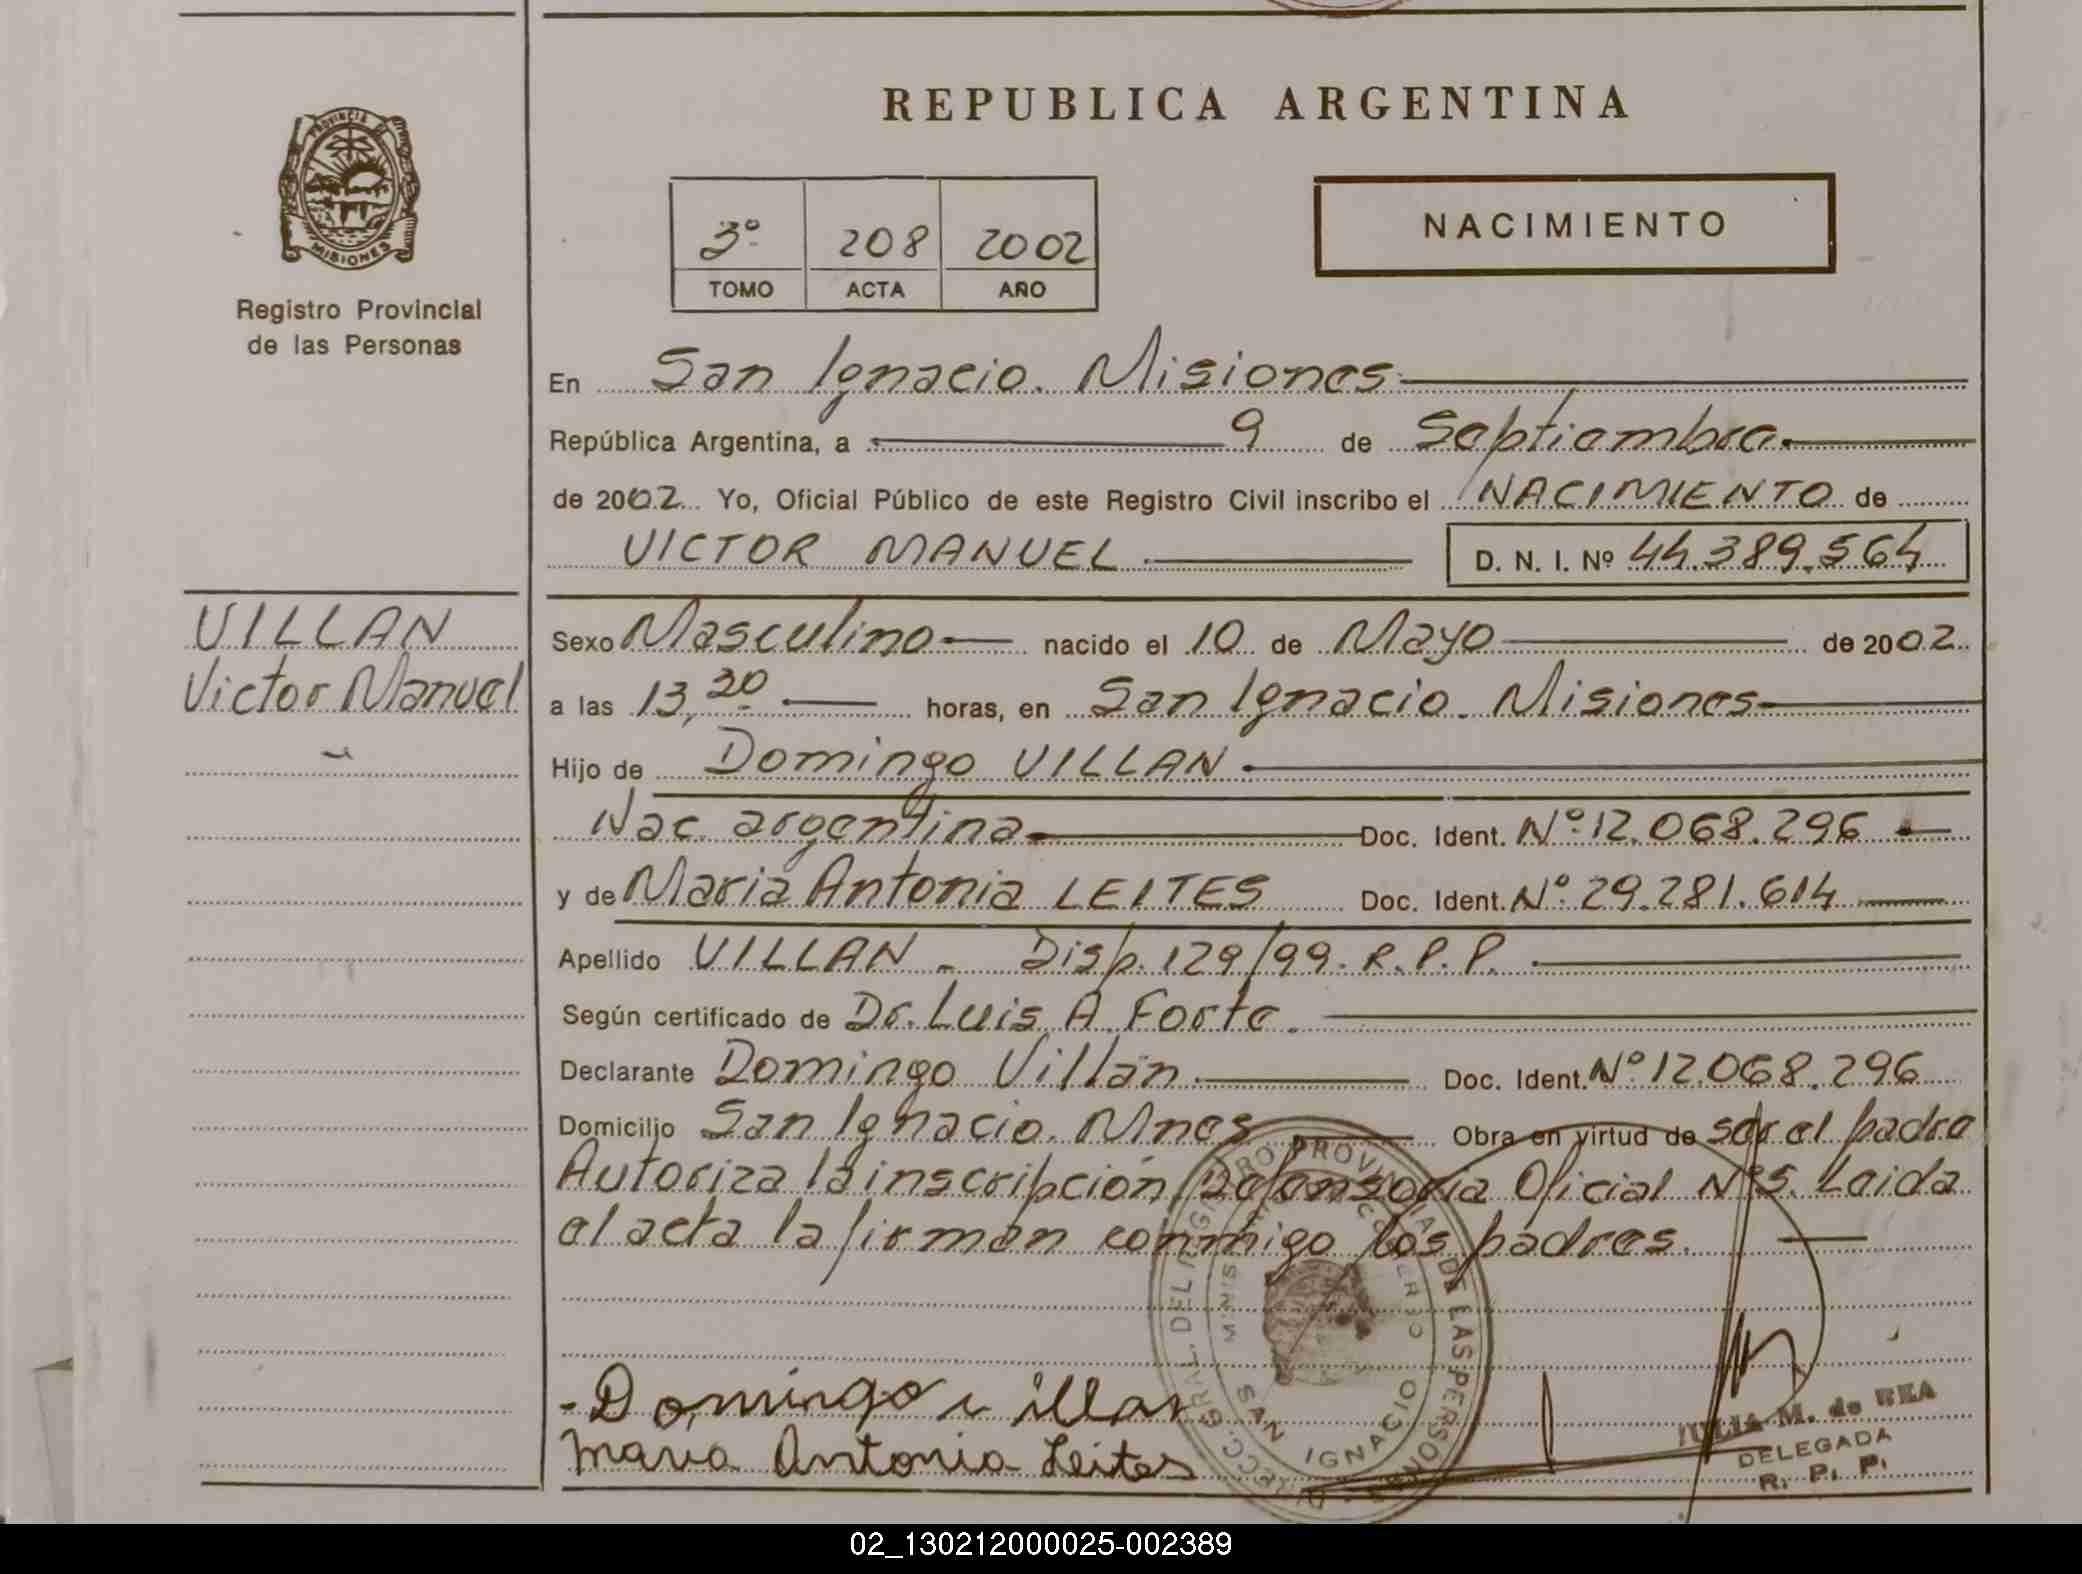 REPUBLICA ARGENTINA
PROVINCIA DE
MISIONES
Registro Provincial
de las Personas
3º 208 2002
TOMO ACTA AÑO
NACIMIENTO
En San Ignacio. Misiones
República Argentina, a 9 de Septiembre
de 2002 Yo, Oficial Público de este Registro Civil inscribo el NACIMIENTO de
VICTOR MANUEL D. N. I. Nº 44.389.564
VILLAN
Victor Manuel
Sexo Masculino nacido el 10 de Mayo de 2002
a las 13,20 horas, en San Ignacio. Misiones
Hijo de Domingo VILLAN
Nac. argentina Doc. Ident. Nº 12.068.296
y de Maria Antonia LEITES Doc. Ident. Nº 29.281.614
Apellido VILLAN - Disp. 129/99. R.P.P.
Según certificado de Dr. Luis A. Forte.
Declarante Domingo Villan Doc. Ident. Nº 12.068.296
Domicilio San Ignacio. Mnes Obra en virtud de ser el padre
Autoriza la inscripción Defensoría Oficial Nº5. Leida
el acta la firman conmigo los padres.
DIRECC. GRAL. DEL REGISTRO PROVINCIAL DE LAS PERSONAS
SAN IGNACIO
Domingo villan
Maria Antonia Leites
JULIA M. de REA
DELEGADA
R. P. P.
02_130212000025-002389